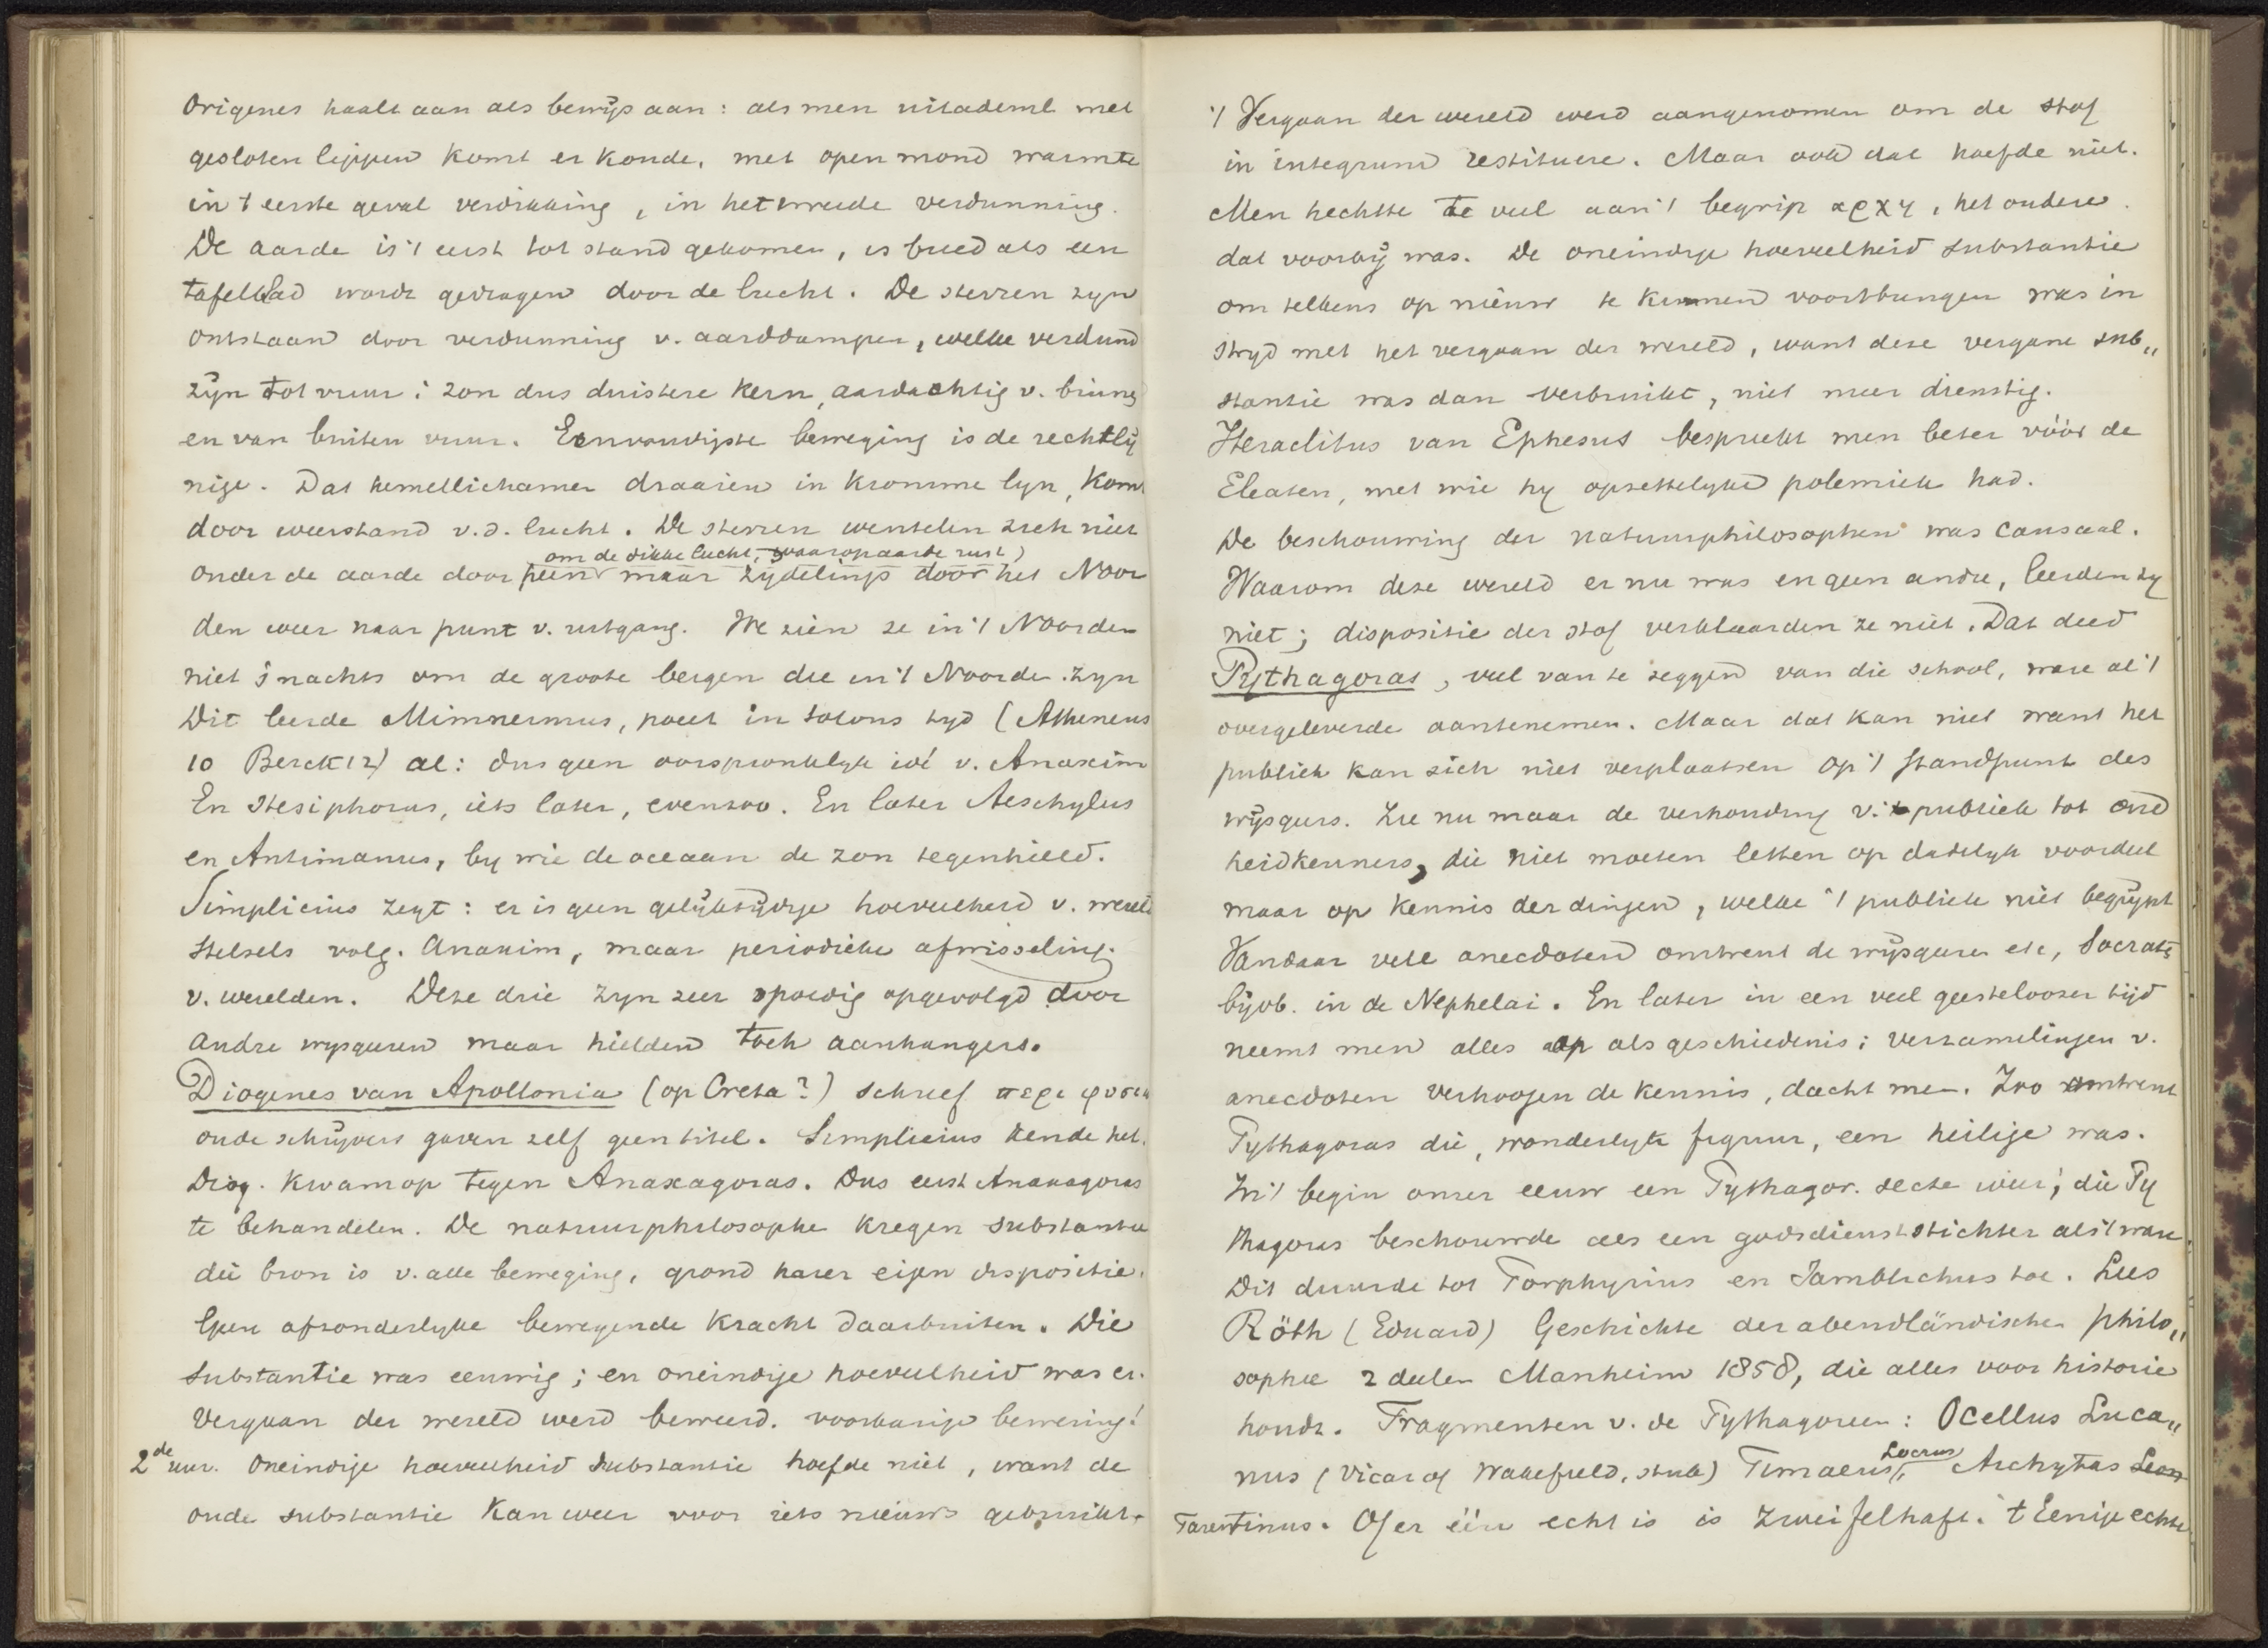 Origenes haalt aan als bewijs aan: als men uitademt met
gesloten lippen komt er koude, met open mond warmte
in 't eerste geval verdikking, in het tweede verdunning.
De aarde is 't eerst tot stand gekomen, is breed als een
tafelblad wordt gedragen door de lucht. De sterren zyn
ontstaan door verdunning v. aarddampen, welke verdund
zijn tot vuur: zon dus duistere kern, aardachtig v. binnen
en van buiten vuur. Eenvoudigste beweging is de rechtlij
nige. Dat hemellichamen draaien in kromme lyn, komt
door weerstand v.d. lucht. De sterren wentelen zich niet
om de dikke lucht, waarop aarde rust)
onder de aarde door heen maar zijdelings door het Noor
den weer naar punt v. uitgang. We zien ze in 't Noorden
niet 's nachts om de groote bergen die in 't Noorden zyn
Dit leerde Mimnermus, poeet in Solons tyd (Atheneus
10 Berck 12) al: dus geen oorspronkelyk idé v. Anaxim
En Stesiphorus, iets later, evenzoo. En later Aeschylus
en Antimanus, by wie de oceaan de zon tegenhield.
Simplicius zegt: er is geen gelijktijdige hoeveelheid v. wereld
stelsels volg. Anaxim, maar periodieke afwisseling
v. werelden. Deze drie zyn zeer spoedig opgevolgd door
andre wysgeeren maar hielden toch aanhangers.
Diogenes van Apollonia (op Creta?) schreef περι φυσεω
oude schrijvers gaven zelf geen titel. Simplicius kende het.
Diog. kwam op tegen Anaxagoras. Dus eerst Anaxagoras
te behandelen. De natuurphilosophe kregen substantie
die bron is v. alle beweging, grond harer eigen dispositie.
Geen afzonderlyke bewegende kracht daarbuiten. Die
substantie was eeuwig; en oneindige hoeveelheid was er.
Vergaan der wereld werd beweerd. voorbarige bewering!
2de uur. Oneindige hoeveelheid substantie hoefde niet, want de
oude substantie kan weer voor iets nieuws gebruikt.
't Vergaan der wereld werd aangenomen om de stof
in integrum restituere. Maar ook dat hoefde niet.
Men hechtte te veel aan 't begrip αρχη, het oudere
dat voorbij was. De oneindige hoeveelheid substantie
om telkens op nieuw te kunnen voortbrengen was in
stryd met het vergaan der wereld, want deze vergane sub„
stantie was dan verbruikt, niet meer dienstig.
Heraclitus van Ephesus bespreekt men beter vóór de
Eleaten, met wie hy opzettelyke polemiek had.
De beschouwing der natuurphilosophen was causaal.
Waarom deze wereld er nu was en geen andre, leerden zy
niet; dispositie der stof verklaarden ze niet. Dat deed
Pythagoras, veel van te zeggen van die school, ware al 't
overgeleverde aantenemen. Maar dat kan niet want het
publiek kan zich niet verplaatsen op 't standpunt des
wijsgeers. Zie nu maar de verhouding v. 't publiek tot oud
heidkenners, die niet moeten letten op dadelyk voordeel
maar op kennis der dingen, welke 't publiek niet begrijpt
Vandaar vele anecdoten omtrent de wijsgeeren etc, Socrates
bijvb. in de Nephelai. En later in een veel geesteloozer tijd
neemt men alles op als geschiedenis; verzamelingen v.
anecdoten verhoogen de kennis, dacht men. Zoo omtrent
Pythagoras die, wonderlyke figuur, een heilige was.
In 't begin onzer eeuw een Pythagor. secte weer, die Py
thagoras beschouwde als een godsdienststichter als 't ware.
Dit duurde tot Porphyrius en Jamblichus toe. Lees
Röth (Eduard) Geschichte der abendländischen philo„
sophie 2 deelen Manheim 1858, die alles voor historie
houdt. Fragmenten v. de Pythagoreen: Ocellus Luca„
nus (Vicar of Wakefield, stuk) Timaeus Locrus, Archytas
Tarentinus. Of er één echt is is zweifelhaft. 't Eenige echte